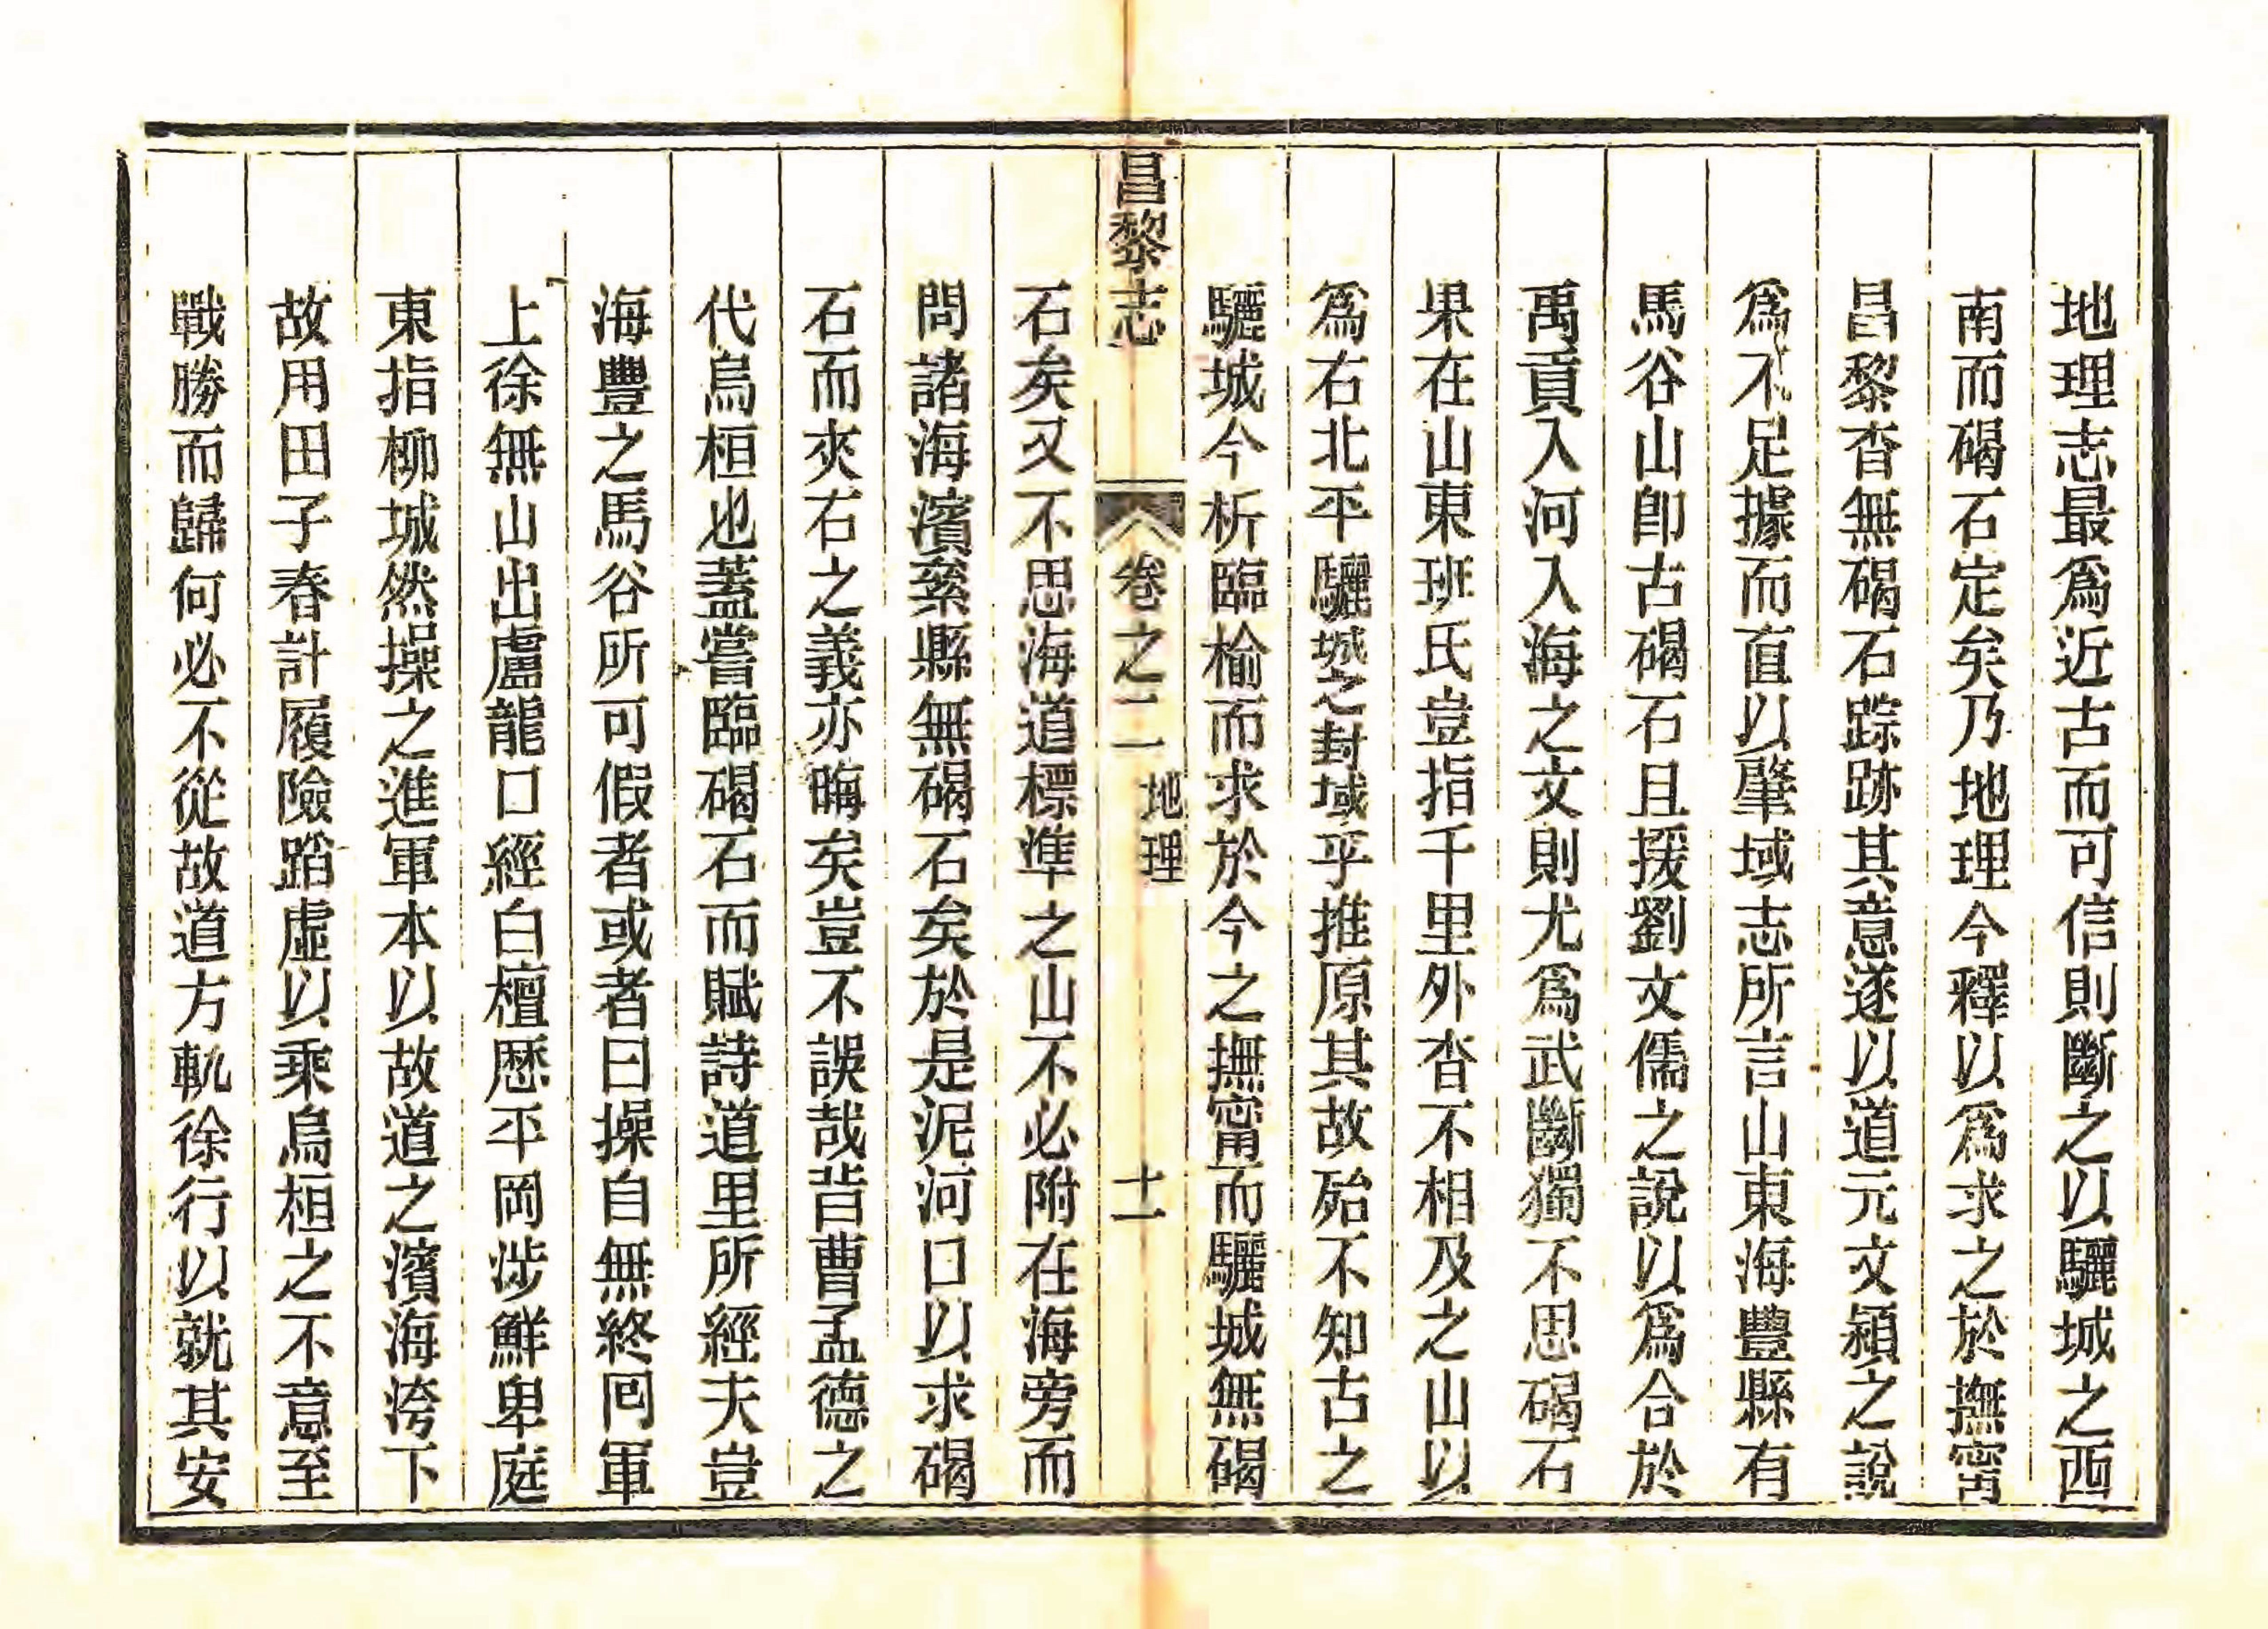 地理志最爲近古而可信則斷之以驪城之西
南而碣石定矣乃地理今釋以爲求之於撫甯
昌黎杳無碣石踪跡其意遂以道元文頴之說
爲不足據而直以肇域志所言山東海豐縣有
馬谷山卽古碣石且援劉文儒之說以爲合於
禹貢入河入海之文則尤爲武斷獨不思碣石
果在山東班氏豈指千里外杳不相及之山以
爲右北平驪城之封域乎推原其故殆不知古之
驪城今析臨榆而求於今之撫甯而驪城無碣
昌黎志 卷之二 地理 十一
石矣又不思海道標準之山不必附在海旁而
問諸海濱絫縣無碣石矣於是泥河口以求碣
石而夾右之義亦晦矣豈不誤哉昔曹孟德之
代烏桓也蓋嘗臨碣石而賦詩道里所經夫豈
海豐之馬谷所可假者或者曰操自無終囘軍
上徐無山出盧龍口經白檀歷平岡涉鮮卑庭
東指柳城然操之進軍本以故道之濱海洿下
故用田子春計履險蹈虛以乘烏桓之不意至
戰勝而歸何必不從故道方軌徐行以就其安